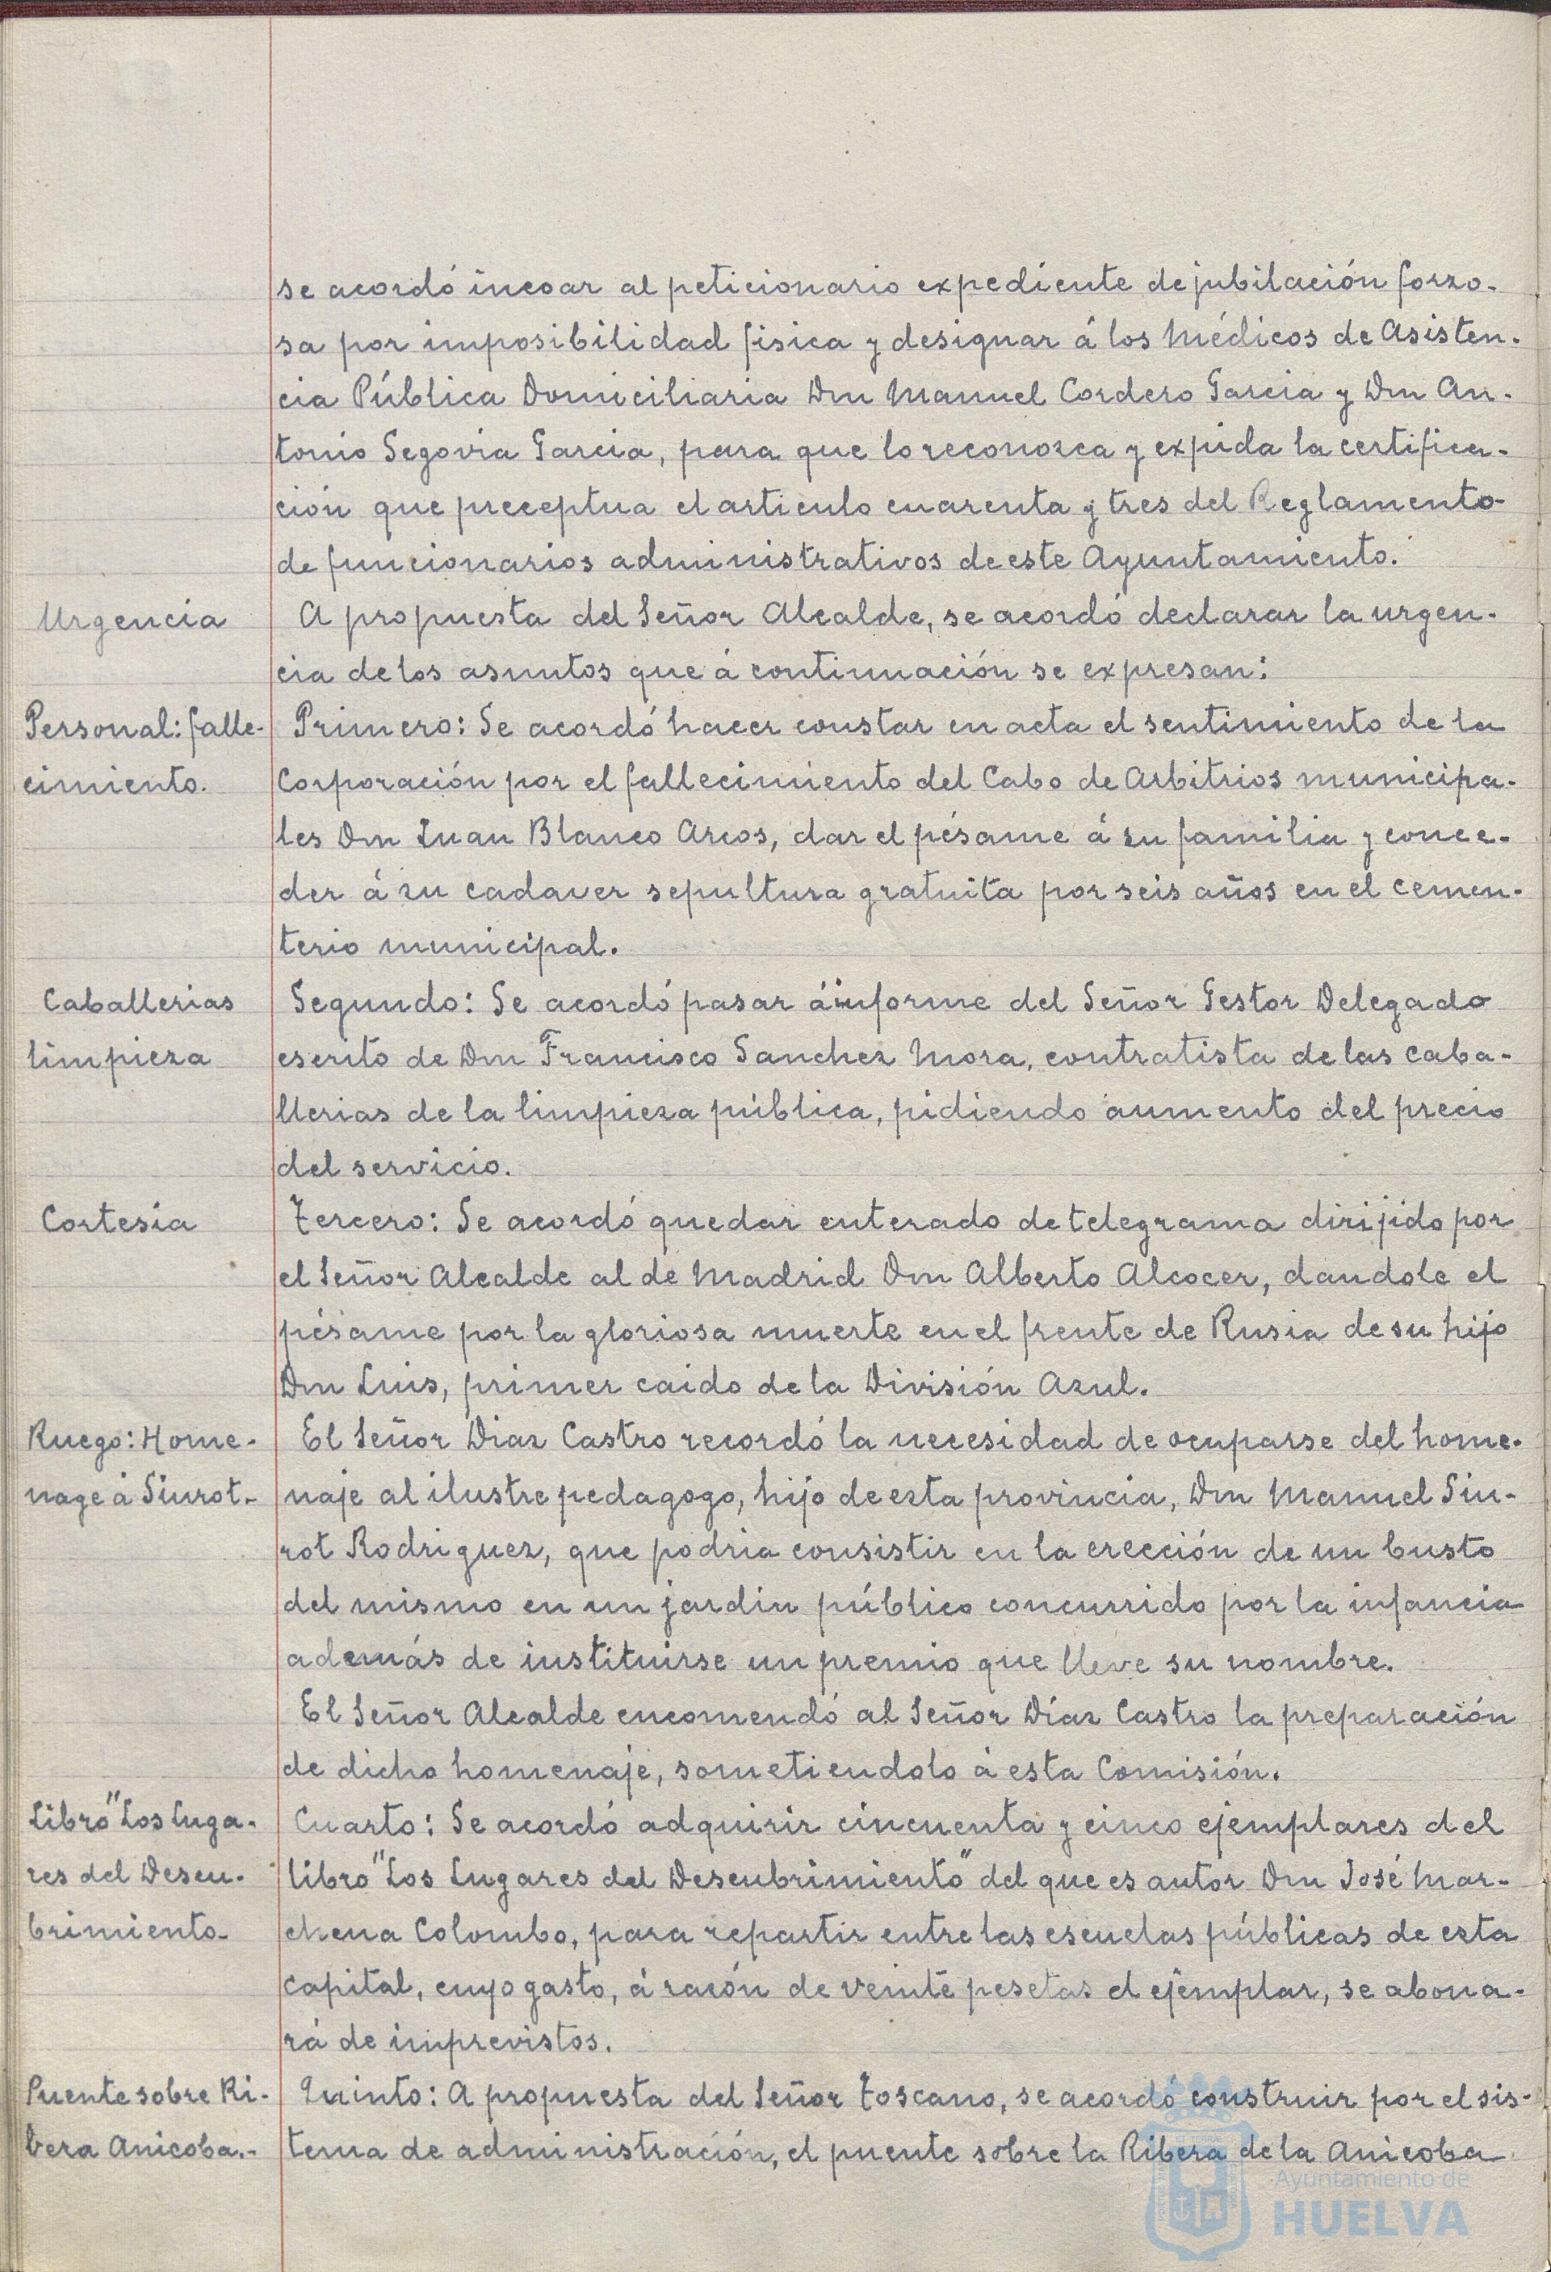 se acordó incoar al peticionario expediente de jubilación forzo-
sa por imposibilidad fisica y designar á los Médicos de Asisten-
cia Pública Domiciliaria Don Manuel Cordero Garcia y Don An-
tonio Segovia Garcia, para que lo reconozca y expida la certifica-
ción que preceptua el articulo cuarenta y tres del Reglamento
de funcionarios administrativos de este Ayuntamiento.
Urgencia
A propuesta del Señor Alcalde, se acordó declarar la urgen-
cia de los asuntos que á continuación se expresan:
Personal: falle-
cimiento.
Primero: Se acordó hacer constar en acta el sentimiento de la
Corporación por el fallecimiento del Cabo de Arbitrios municipa-
les Don Juan Blanco Arcos, dar el pésame á su familia y conce-
der á su cadaver sepultura gratuita por seis años en el cemen-
terio municipal.
Caballerias
limpieza
Segundo: Se acordó pasar á informe del Señor Gestor Delegado
escrito de Don Francisco Sanchez Mora, contratista de las caba-
llerias de la limpieza pública, pidiendo aumento del precio
del servicio.
Cortesia
Tercero: Se acordó quedar enterado de telegrama dirijido por
el Señor Alcalde al de Madrid Don Alberto Alcocer, dandole el
pésame por la gloriosa muerte en el frente de Rusia de su hijo
Don Luis, primer caido de la División Azul.
Ruego: Home-
nage á Siurot.-
El Señor Diaz Castro recordó la necesidad de ocuparse del home-
naje al ilustre pedagogo, hijo de esta provincia, Don Manuel Siu-
rot Rodriguez, que podria consistir en la erección de un busto
del mismo en un jardin público concurrido por la infancia
además de instituirse un premio que lleve su nombre.
El Señor Alcalde encomendó al Señor Díaz Castro la preparación
de dicho homenaje, sometiendolo á esta Comisión.
Libro "Los Luga-
res del Descu-
brimiento.
Cuarto: Se acordó adquirir cincuenta y cinco ejemplares del
libro "Los Lugares del Descubrimiento" del que es autor Don José Mar-
chena Colombo, para repartir entre las escuelas públicas de esta
capital, cuyo gasto, á razón de veinte pesetas el ejemplar, se abona-
rá de imprevistos.
Puente sobre Ri-
bera Anicoba.-
Quinto: A propuesta del Señor Toscano, se acordó construir por el sis-
tema de administración, el puente sobre la Ribera de la Anicoba
Ayuntamiento de
HUELVA